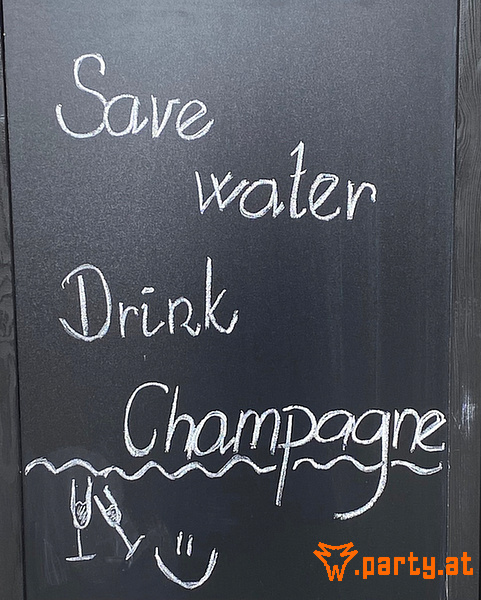 Save
water
Drink
Champagne
.party.at